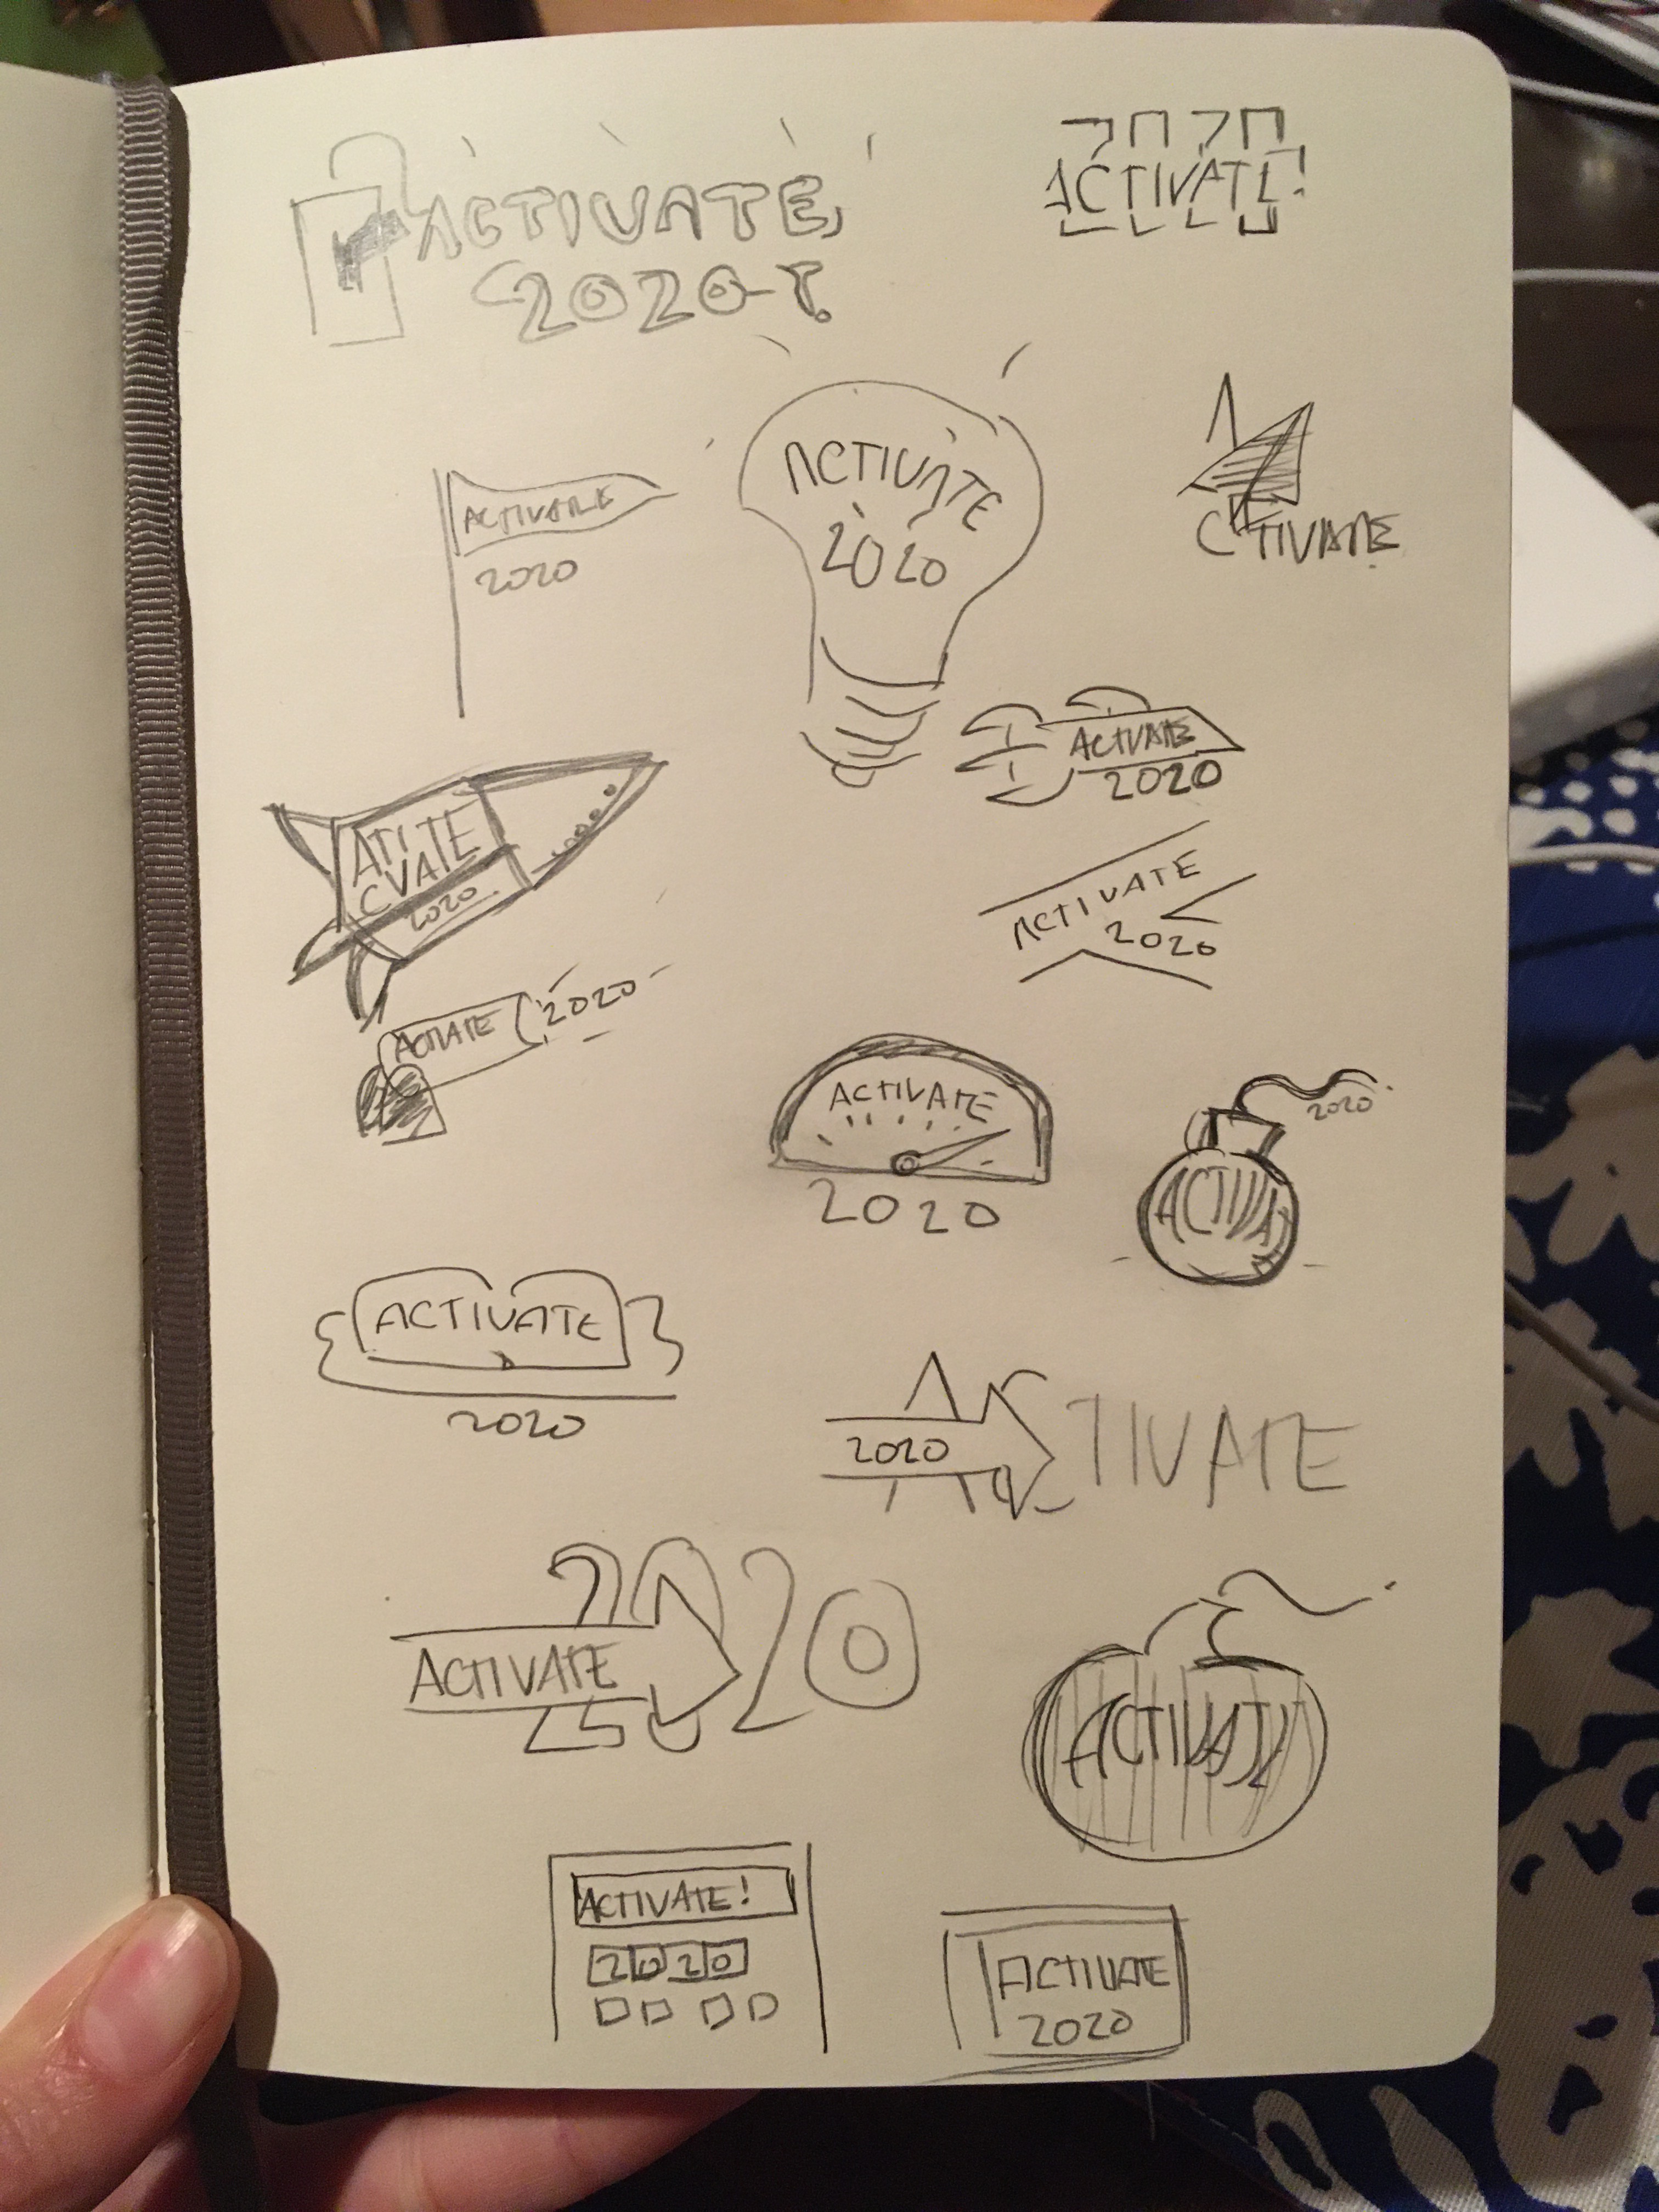 ACTIVATE,
2020
2020
ACTIVATE!
ACTIVATE
2020
ACTIVATE
2020
ACTIVATE
ACTIVATE
2020
ATITE
CVATE
2020
ACTIVATE
2020
ACTIVATE
2020
ACTIVATE
2020
2020
ACTIVATE
ACTIVATE
2020
ACTIVATE
2020
2020
ACTIVATE
ACTIVATE
ACTIVATE!
2020
ACTIVATE
2020